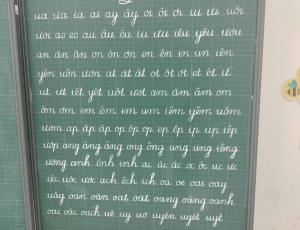 ua ưa ia ai ay ây oi ôi ơi ui ưi uôi
ươi ao eo au âu êu iu ưu iêu yêu ươu
an ăn ân on ôn ơn en ên in un iên
yên uôn ươn at ăt ât ot ôt ơt et êt it
ut ưt iêt yêt uôt ươt am ăm âm om
ôm ơm em êm im um iêm yêm uôm
ươm ap ăp âp op ôp ơp ep êp ip up iêp
ươp ang ăng âng ong ông ung ưng iêng
ương anh ênh inh ac ăc âc oc ôc uc ưc
iêc uôc ươc ach êch ich oa oe oai oay
uây oan oăn oat oăt oang oăng oanh
oac oăc oach uê uy uơ uyên uyêt uyt